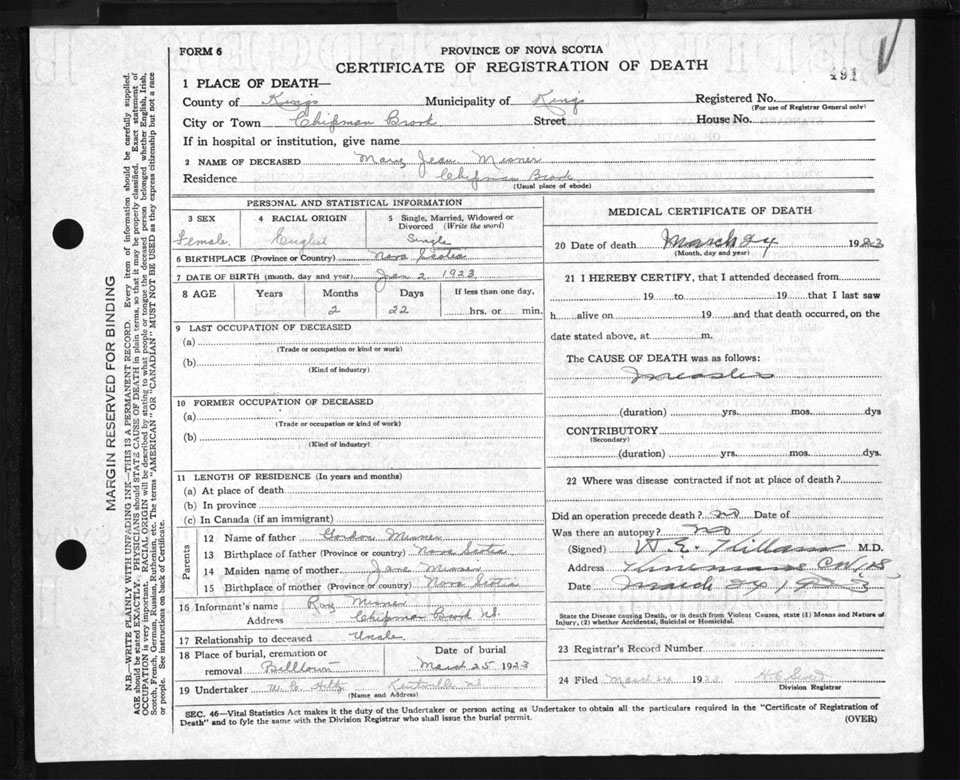 FORM 6
PROVINCE OF NOVA SCOTIA
CERTIFICATE OF REGISTRATION OF DEATH
491
1 PLACE OF DEATH—
County of Kings Municipality of Kings Registered No.
(For use of Registrar General only)
City or Town Chipman Brook Street House No.
If in hospital or institution, give name
2 NAME OF DECEASED Mary Jean Misner
Residence Chipman Brook
(Usual place of abode)
PERSONAL AND STATISTICAL INFORMATION
3 SEX 4 RACIAL ORIGIN 5 Single, Married, Widowed or Divorced (Write the word)
Female English Single
6 BIRTHPLACE (Province or Country) Nova Scotia
7 DATE OF BIRTH (month, day and year) Jan 2 1923
8 AGE Years Months Days If less than one day,
2 22 hrs. or min.
9 LAST OCCUPATION OF DECEASED
(a)
(Trade or occupation or kind or work)
(b)
(Kind of industry)
10 FORMER OCCUPATION OF DECEASED
(a)
(Trade or occupation or kind of work)
(b)
(Kind of industry)
11 LENGTH OF RESIDENCE (In years and months)
(a) At place of death
(b) In province
(c) In Canada (if an immigrant)
Parents
12 Name of father Gordon Misner
13 Birthplace of father (Province or country) Nova Scotia
14 Maiden name of mother Jane Misner
15 Birthplace of mother (Province or country) Nova Scotia
16 Informant's name Roy Misner
Address Chipman Brook NS
17 Relationship to deceased Uncle
18 Place of burial, cremation or removal Billtown
Date of burial
March 25 1923
19 Undertaker W. C. Hiltz Kentville NS
(Name and Address)
MEDICAL CERTIFICATE OF DEATH
20 Date of death March 24 1923
(Month, day and year)
21 I HEREBY CERTIFY, that I attended deceased from
19 to 19 that I last saw
h alive on 19 and that death occurred, on the
date stated above, at m.
The CAUSE OF DEATH was as follows:
Measles
(duration) yrs. mos. dys
CONTRIBUTORY
(Secondary)
(duration) yrs. mos. dys.
22 Where was disease contracted if not at place of death?
Did an operation precede death? no Date of
Was there an autopsy? no
(Signed) W. E. Killam M.D.
Address
Date March 24 1923
State the Disease causing Death, or in death from Violent Causes, state (1) Means and Nature of Injury, (2) whether Accidental, Suicidal or Homicidal.
23 Registrar's Record Number
24 Filed March 24 1923
Division Registrar
SEC. 46—Vital Statistics Act makes it the duty of the Undertaker or person acting as Undertaker to obtain all the particulars required in the "Certificate of Registration of
Death" and to fyle the same with the Division Registrar who shall issue the burial permit.
(OVER)
MARGIN RESERVED FOR BINDING
N.B.—WRITE PLAINLY WITH UNFADING INK—THIS IS A PERMANENT RECORD. Every item of information should be carefully supplied.
AGE should be stated EXACTLY. PHYSICIANS should STATE CAUSE OF DEATH in plain terms, so that it may be properly classified. Exact statement of
OCCUPATION is very important. RACIAL ORIGIN will be described by stating to what people or tongue the deceased person belonged whether English, Irish,
Scotch, French, German, Russian, Ruthenian, etc. The terms "AMERICAN" OR "CANADIAN" MUST NOT BE USED as they express citizenship but not a race
or people. See instructions on back of Certificate.